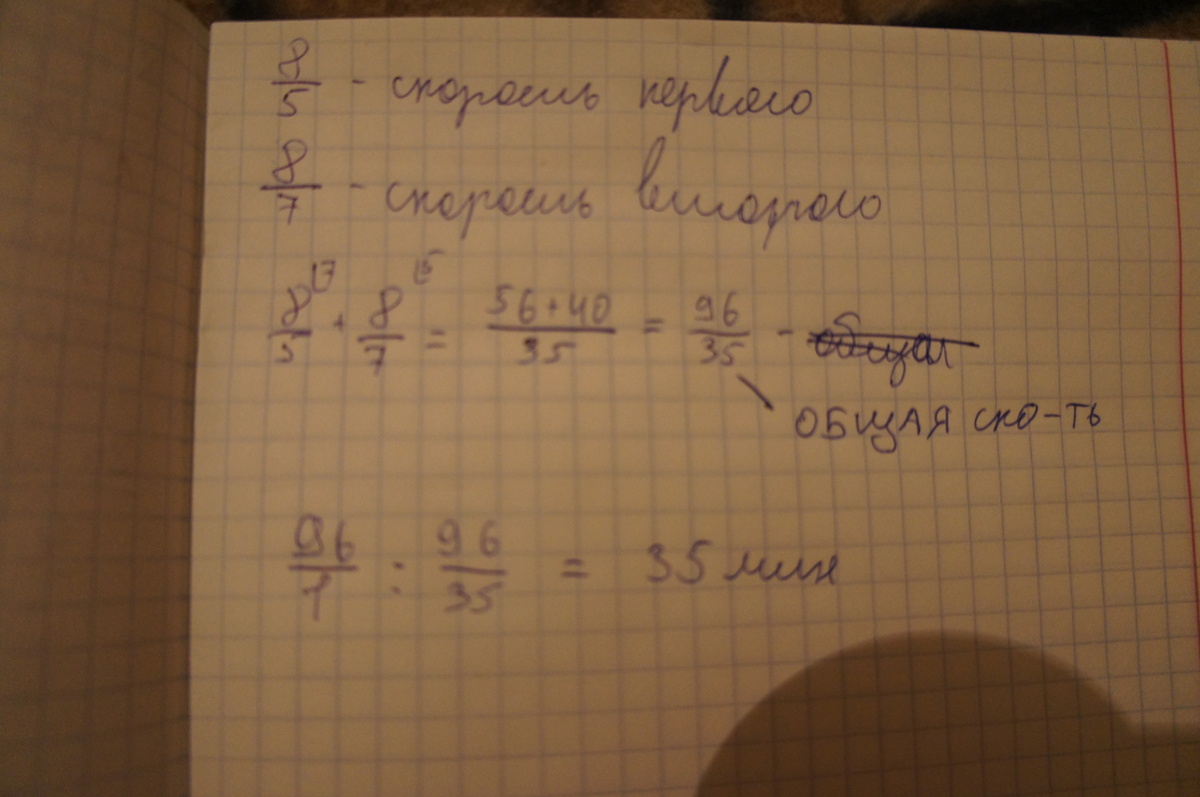 8/5 - скорость первого
8/7 - скорость второго
8/5 (7 + 8/7 (5 = 56+40/35 = 96/35 - общая
ОБЩАЯ ско-ть
96/1 : 96/35 = 35 мин